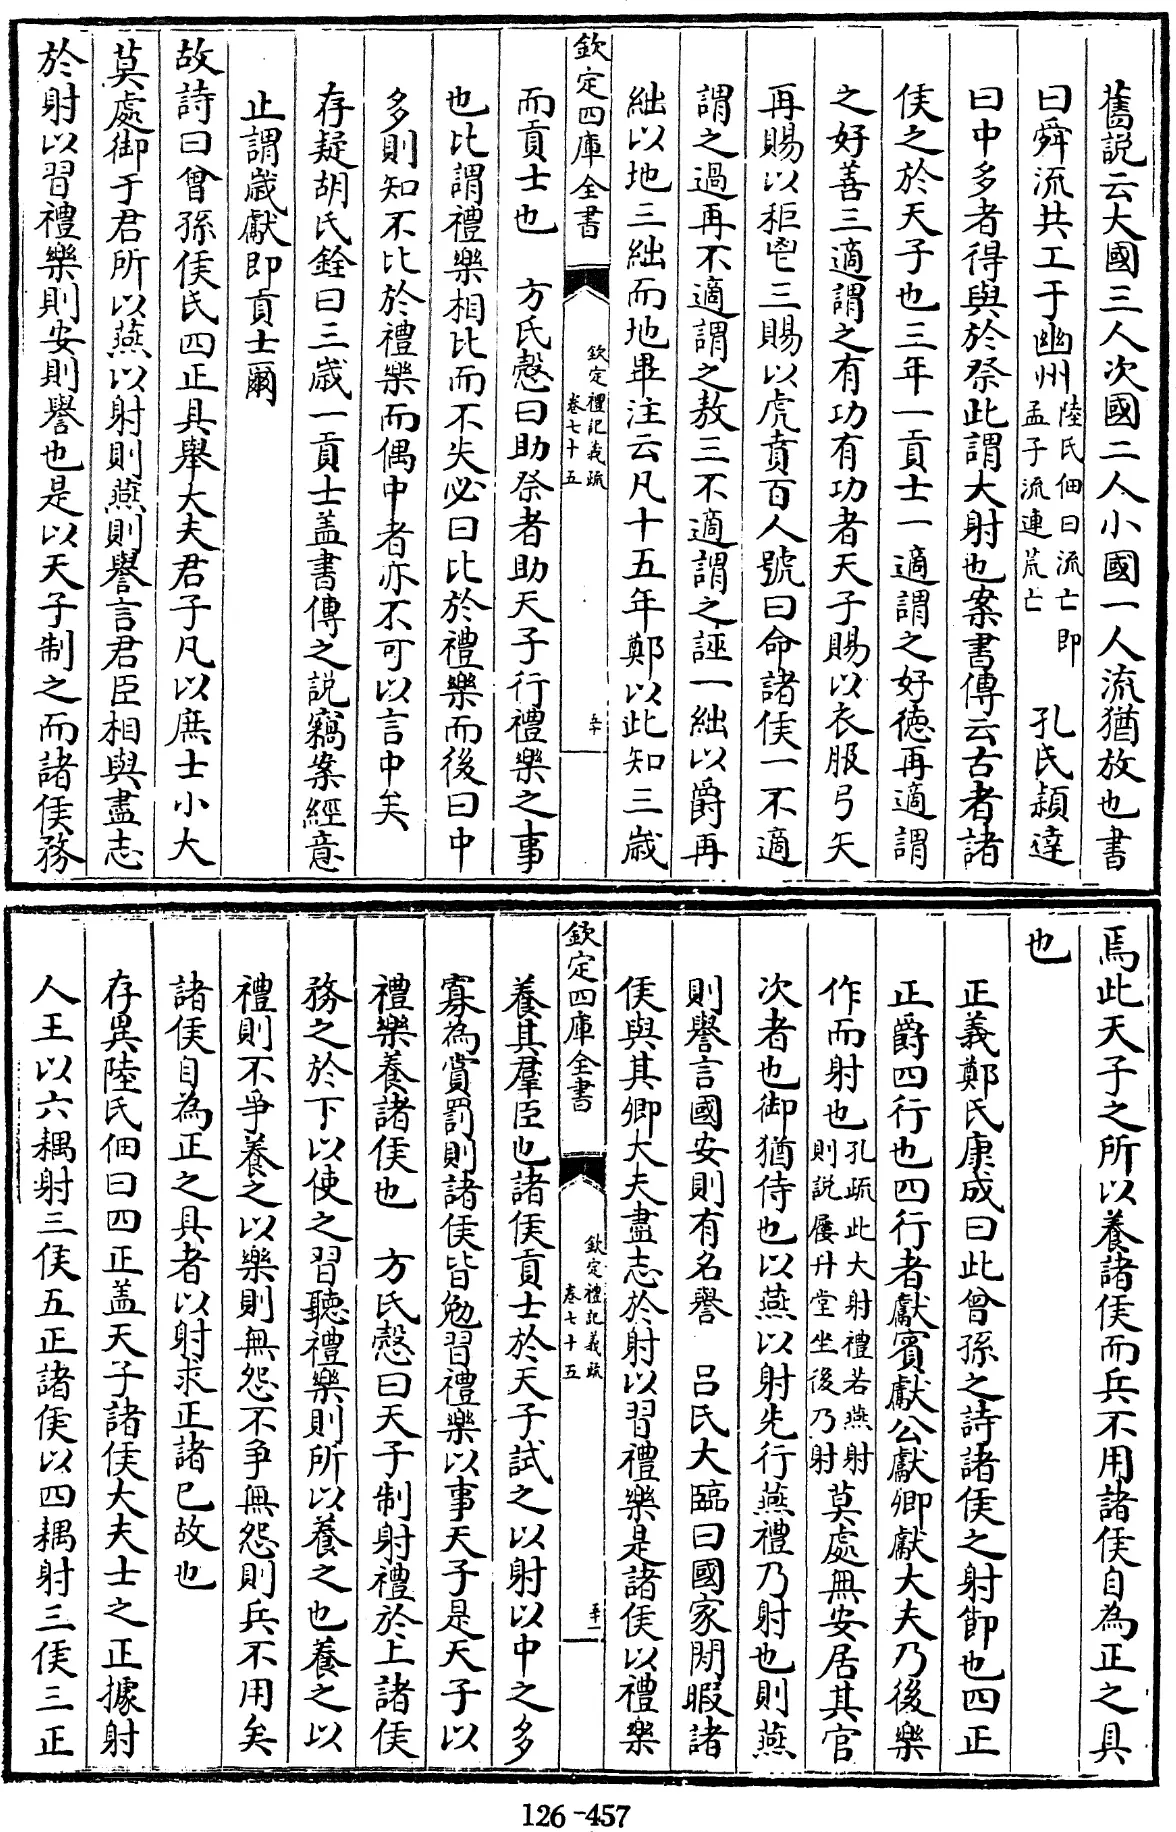 舊説云大國三人次國二人小國一人流猶放也書
曰舜流共工于幽州陸氏佃曰流亡即孟子流連荒亡 孔氏穎達
曰中多者得與於祭此謂大射也案書傳云古者諸
侯之於天子也三年一貢士一適謂之好德再適謂
之好善三適謂之有功有功者天子賜以衣服弓矢
再賜以秬鬯三賜以虎賁百人號曰命諸侯一不適
謂之過再不適謂之敖三不適謂之誣一絀以爵再
絀以地三絀而地畢注云凡十五年鄭以此知三歳
欽定四庫全書 欽定禮記義疏 卷七十五 五十
而貢士也 方氏慤曰助祭者助天子行禮樂之事
也比謂禮樂相比而不失必曰比於禮樂而後曰中
多則知不比於禮樂而偶中者亦不可以言中矣
存疑胡氏銓曰三歳一貢士盖書傳之説竊案經意
止謂歳獻即貢士爾
故詩曰曾孫侯氏四正具舉大夫君子凡以庶士小大
莫處御于君所以燕以射則燕則譽言君臣相與盡志
於射以習禮樂則安則譽也是以天子制之而諸侯務
焉此天子之所以養諸侯而兵不用諸侯自為正之具
也
正義鄭氏康成曰此曾孫之詩諸侯之射節也四正
正爵四行也四行者獻賓獻公獻卿獻大夫乃後樂
作而射也孔疏此大射禮若燕射則説屨升堂坐後乃射莫處無安居其官
次者也御猶侍也以燕以射先行燕禮乃射也則燕
則譽言國安則有名譽 吕氏大臨曰國家閒暇諸
侯與其卿大夫盡志於射以習禮樂是諸侯以禮樂
欽定四庫全書 欽定禮記義疏 卷七十五 五十一
養其羣臣也諸侯貢士於天子試之以射以中之多
寡為賞罰則諸侯皆勉習禮樂以事天子是天子以
禮樂養諸侯也 方氏慤曰天子制射禮於上諸侯
務之於下以使之習聽禮樂則所以養之也養之以
禮則不爭養之以樂則無怨不争無怨則兵不用矣
諸侯自為正之具者以射求正諸已故也
存異陸氏佃曰四正盖天子諸侯大夫士之正據射
人王以六耦射三侯五正諸侯以四耦射三侯三正
126-457